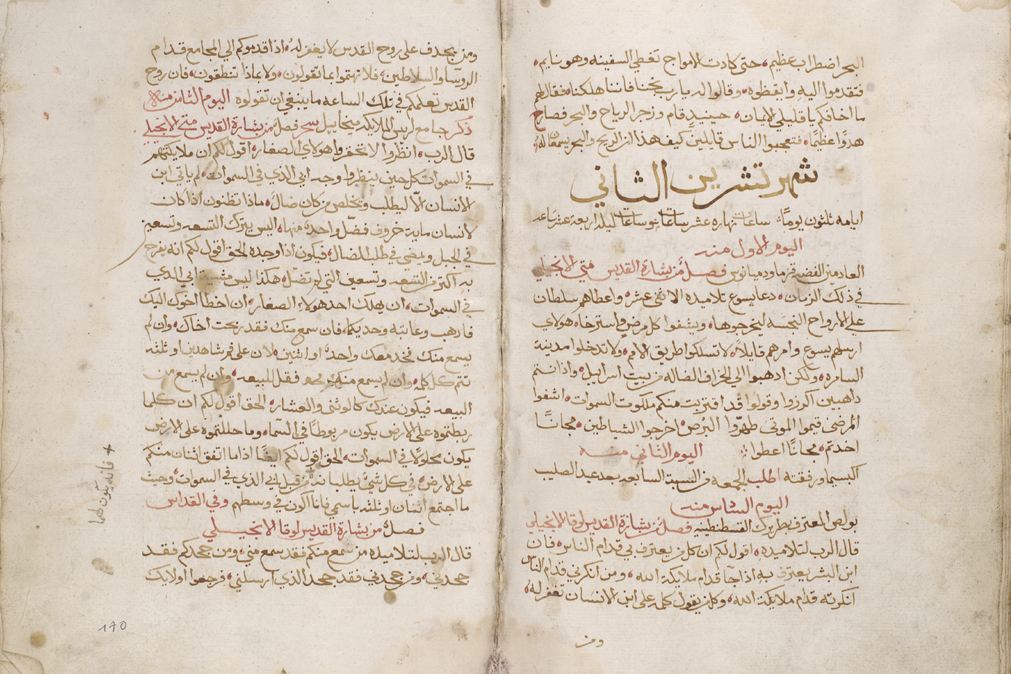 البحر اضطراب عظيم، حتى كادت الامواج تغطي السفينه وهو نايم،
فتقدموا اليه وايقظوه، وقالوا له يا رب نجنا فاننا هلكنا، فقال لهم
ما اخافكم يا قليلي الايمان، حينيد قام وزجر الرياح والبحر فصار
هدوًا عظيمًا، فتعجبوا الناس قايلين كيف هذا ان الريح والبحر يسمعان له،
شهر تشرين الثاني
ايامه ثلثون يومًا، ساعات نهاره عشر ساعات وساعات ليله اربعة عشر ساعه
اليوم الاول منه
العادمين الفضه قزما ودميانوس فصل من بشارة القديس متى الانجيلي
في ذلك الزمان، دعا يسوع تلاميده الاثني عشر، واعطاهم سلطان
على الارواح النجسه ليخرجوها، ويشفوا كل مرض واسترخاء، هولاي
ارسلهم يسوع وامرهم قايلاً، لا تسلكوا طريق الامم، ولا تدخلوا مدينة
السامره، ولكن ادهبوا الى الخراف الضاله من بيت اسراييل، واذا انتم
داهبين اكرزوا وقولوا قد اقتربت منكم ملكوت السموات، اشفوا
المرضى قيموا الموتى طهروا البرص، اخرجوا الشياطين، مجانًا
اخدتم، مجانًا اعطوا، اليوم الثاني منه
اكيسيما ورفقته اطلب الجمعه من السبة السابعه بعد عيد الصليب
اليوم السادس منه
بولص المعترف بطريرك القسطنطينيه فصل من بشارة القديس لوقا الانجيلي
قال الرب لتلاميده، اقول لكم ان كل من يعترف بي قدام الناس، فان
ابن البشر يعترف به قدام ملايكة الله، ومن انكرني قدام الناس
انكرته قدام ملايكة الله، وكل من يقول كلمه على ابن الانسان يغفر له،
ومن
ومن يجدف على روح القدس لا يغفر له، اذا قدموكم الى المجامع قدام
الروسا والسلاطين، فلا تهتموا بما تقولون، ولا بماذا تنطقون، فان روح
القدس تعلمكم في تلك الساعه ما ينبغي ان تقولوه اليوم الثامن منه
ذكر جامع اريس الملايكه ميخاييل سحر فصل من بشارة القديس متى الانجيلي
قال الرب، انظروا لا تحقروا هولاي الصغار، اقول لكم ان ملايكتهم
في السموات كل حين ينظروا وجه ابي الذي في السموات، لم ياتي ابن
الانسان الا ليطلب ويخلص من كان ضال، ماذا تظنون اذا كان
لانسان ماية خروف فضل واحد منها، اليس يترك التسعه وتسعين
في الجبل ويمضي في طلب الضال، فيكون اذا وجده الحق اقول لكم انه يفرح
به اكثر من التسعه وتسعين التي لم تضل، هكذا ليس مشية ابي الذي
في السموات، ان يهلك احد هولاي الصغار، ان اخطا اخوك اليك
فادهب وعاتبه وحديكما، فان سمع منك فقد ربحت اخاك، وان لم
يسمع منك فخد معك واحد، او اثنين، لان على فم شاهدين او ثلثه
تتم كل كلمه، وان لم يسمع منهم فقل للبيعه، وان لم يسمع من
البيعه فيكون عندك كالوثني والعشار، الحق اقول لكم ان كلما
ربطتموه على الارض يكون مربوطًا في السماء، وما حللتموه على الارض
يكون محلولاً في السموات، الحق اقول لكم ايضًا اذا ما اتفق اثنان منكم
على الارض، في كل شي يطلبانه من قبل ابي الذي في السموات، وحيث
ما اجتمع اثنان او ثلثه باسمي فانا اكون في وسطهم وفي القداس
فصل من بشارة القديس لوقا الانجيلي
قال الرب لتلاميده من سمع منكم فقد سمع مني، ومن جحدكم فقد
جحدني، ومن جحدني فقد جحد الذي ارسلني، فرجعوا اولايك
+ فانه يكون لهما
140